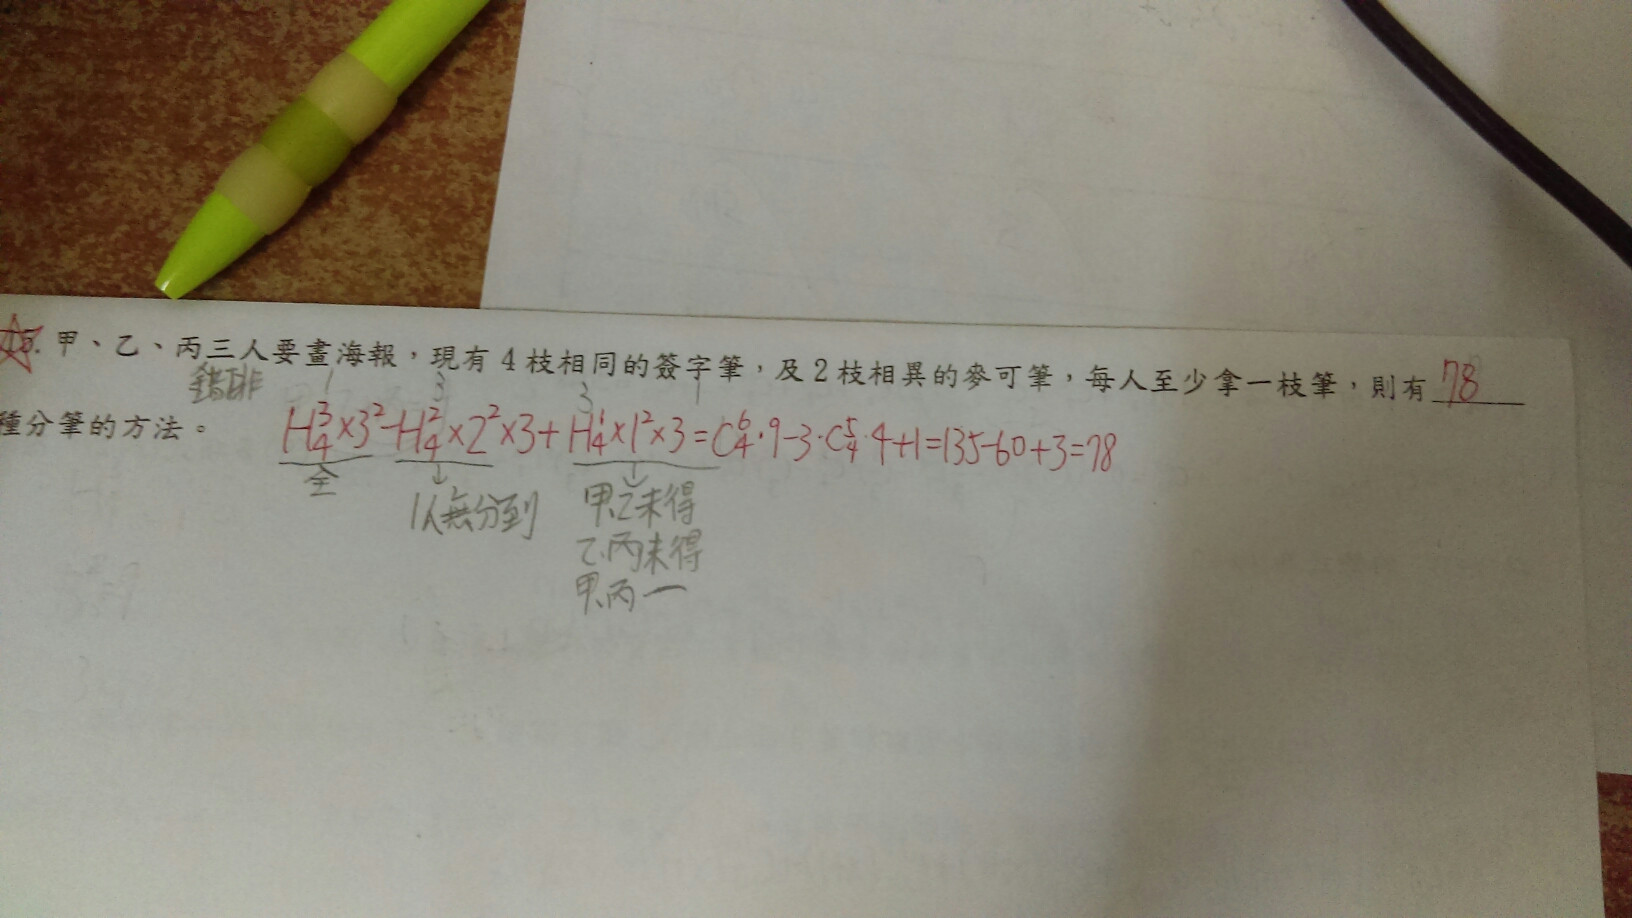 甲、乙、丙三人要畫海報，現有 4 枝相同的簽字筆，及 2 枝相異的麥可筆，每人至少拿一枝筆，則有 78
錯排 1 3 3 1
種分筆的方法。 H³₄×3²-H²₄×2²×3+H¹₄×1²×3=C⁶₄·9-3·C⁵₄·4+1=135-60+3=78
全 ↓ ↓
1人無分到 甲、乙未得
乙、丙未得
甲、丙一